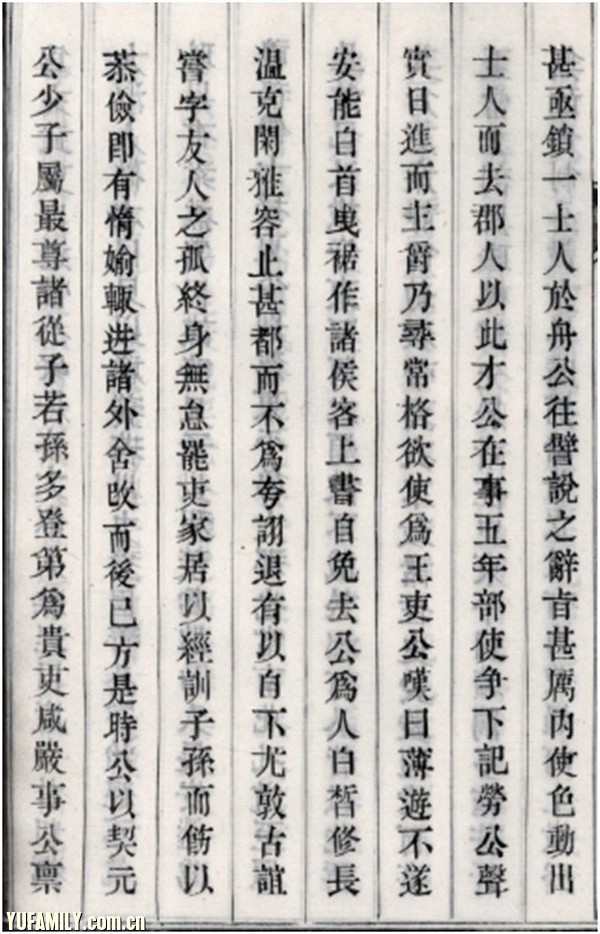 甚亟鎖一士人於舟公往譬說之辭㫖甚厲內使色動出
士人而去郡人以此才公在事五年部使爭下記勞公聲
實日進而主爵乃尋常格欲使爲王吏公嘆曰薄遊不遂
安能白首曳裾作諸侯客上書自免去公爲人白皙修長
溫克閑雅容止甚都而不爲夸詡退有以自下尤敦古誼
嘗字友人之孤終身無怠罷吏家居以經訓子孫而飭以
恭儉卽有惰媮輒迸諸外舍改而後已方是時公以契元
公少子屬最尊諸從子若孫多登第爲貴吏咸嚴事公稟
YUFAMILY.com.cn